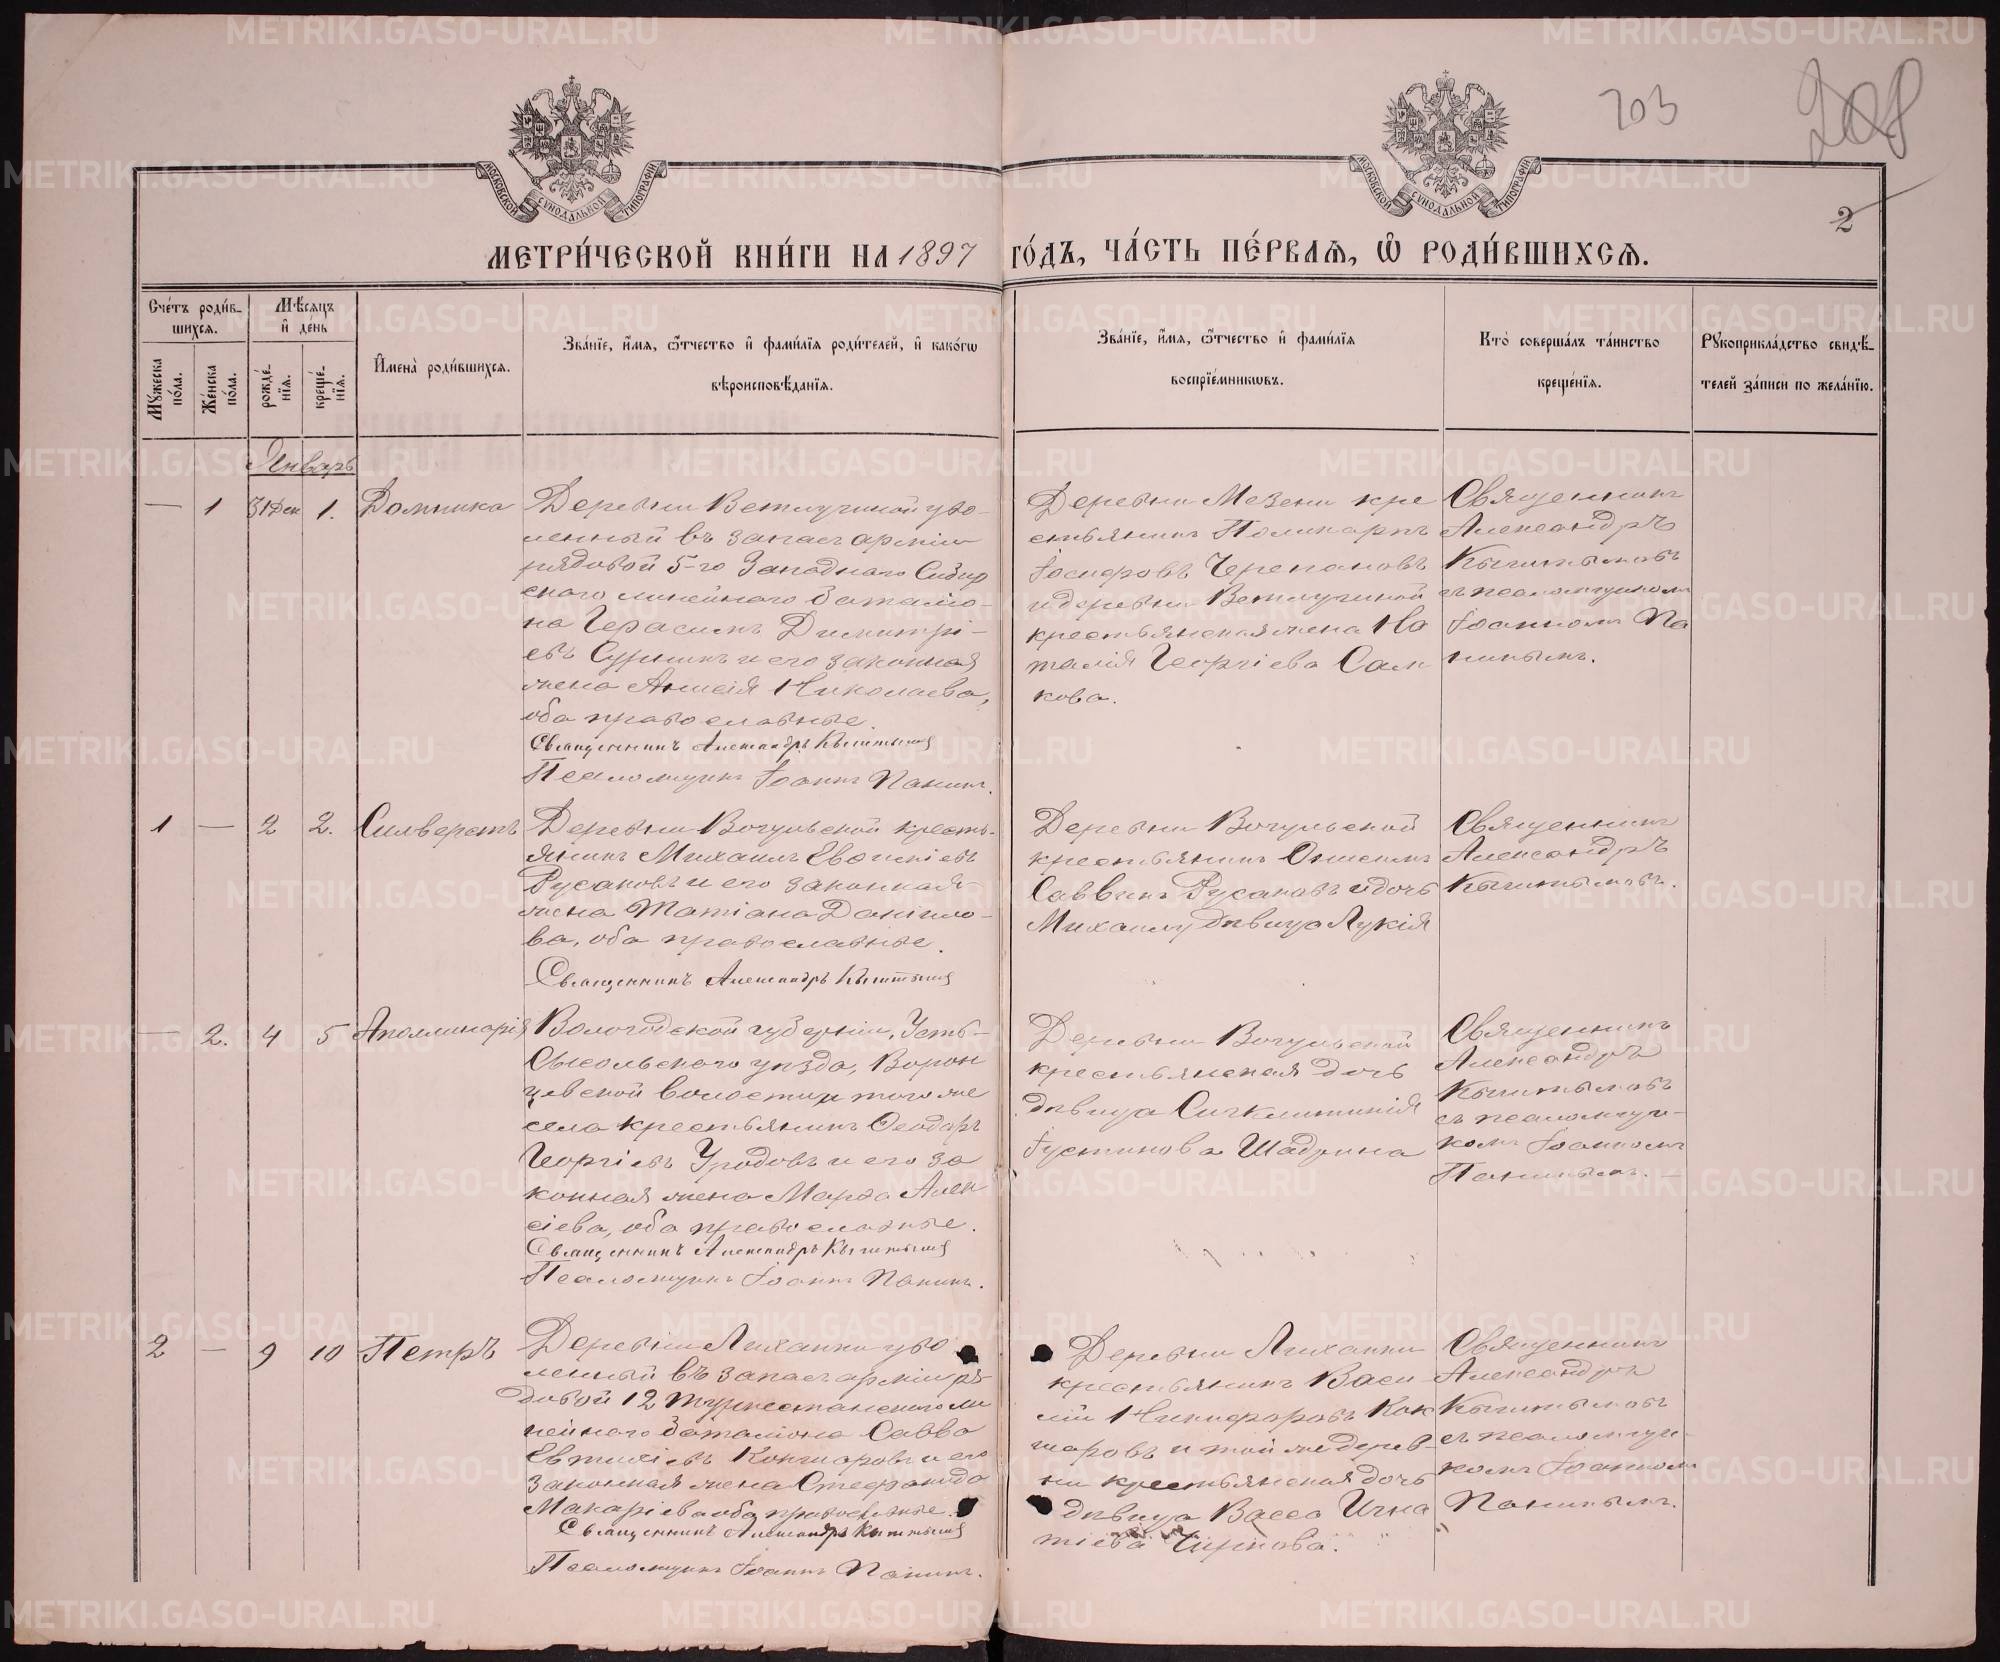 703
208
2
МОСКОВСКОЙ СѴНОДАЛЬНОЙ ТИПОГРАФІИ
МОСКОВСКОЙ СѴНОДАЛЬНОЙ ТИПОГРАФІИ
МЕТРИ́ЧЕСКОЙ КНИ́ГИ НА 1897 ГО́ДЪ, ЧА́СТЬ ПЕ́РВАѦ, Ѡ РОДИ́ВШИХСѦ.
Сче́тъ роди́в-
шихсѧ.
Мѣсѧцъ
и де́нь
Мꙋжеска по́ла.
Же́нска по́ла.
рожде́-
нїѧ.
креще́-
нїѧ.
Имена̀ роди́вшихсѧ.
Зва́нїе, и́мѧ, ѻ҆́тчество и фами́лїѧ роди́телей, и како́гѡ
вѣроисповѣ́данїѧ.
Зва́нїе, и́мѧ, ѻ҆́тчество и фами́лїѧ
воспрїе́мникѡвъ.
Кто̀ соверша́лъ та́инство
креще́нїѧ.
Рꙋкоприкла́дство свидѣ́-
телей за́писи по жела́нїю.
Январь
— 1 31 Дек 1. Домника
Деревни Ветлугиной уво-
ленный въ запасъ арміи
рядовой 5-го Западнаго Сибир
скаго линейнаго баталіо-
на Герасимъ Димитрі-
евъ Сурнинъ и его законная
жена Анисія Николаева,
оба православные.
Священникъ Александръ Кыштымов
Псаломщикъ Іоаннъ Панинъ.
Деревни Мезени кре
стьянинъ Поликарпъ
Іосифовъ Черепановъ
и деревни Ветлугиной
крестьянская жена На
талія Георгіева Сал
кова.
Священникъ
Александръ
Кыштымовъ
съ псаломщикомъ
Іоанномъ Па
нинымъ.
1 — 2 2. Силверстъ
Деревни Вогульской кресть-
янинъ Михаилъ Евсигніевъ
Русаковъ и его законная
жена Татіана Даніило-
ва, оба православные.
Священникъ Александръ Кыштымов
Деревни Вогульской
крестьянинъ Онисимъ
Саввинъ Русаковъ и дочь
Михаилу дѣвица Лукія
Священникъ
Александръ
Кыштымовъ.
— 2. 4 5 Аполлинарія
Вологодской губерніи, Усть-
Сысольскаго уѣзда, Ворон
цевской волости и того же
села крестьянинъ Ѳеодоръ
Георгіевъ Уродовъ и его за
конная жена Марѳа Алек
сіева, оба православные.
Священникъ Александръ Кыштымов
Псаломщикъ Іоаннъ Панинъ.
Деревни Вогульской
крестьянская дочь
дѣвица Сигклитикія
Іустинова Шадрина
Священникъ
Александръ
Кыштымовъ
съ псаломщи-
комъ Іоанномъ
Панинымъ. —
2 — 9 10 Петръ
Деревни Лиханки уво
ленный въ запасъ арміи ря-
довой 12 Туркестанскаго ли
нейнаго баталіона Савва
Евтихіевъ Кокшаровъ и его
законная жена Стефанида
Макаріева оба православные.
Священникъ Александръ Кыштымов
Псаломщикъ Іоаннъ Панинъ.
Деревни Лиханки
крестьянинъ Васи
лій Никифоровъ Кок
шаровъ и той же дерев-
ни крестьянская дочь
дѣвица Васса Игна
тіева Чиркова.
Священникъ
Александръ
Кыштымовъ
съ псаломщи-
комъ Іоанномъ
Панинымъ.